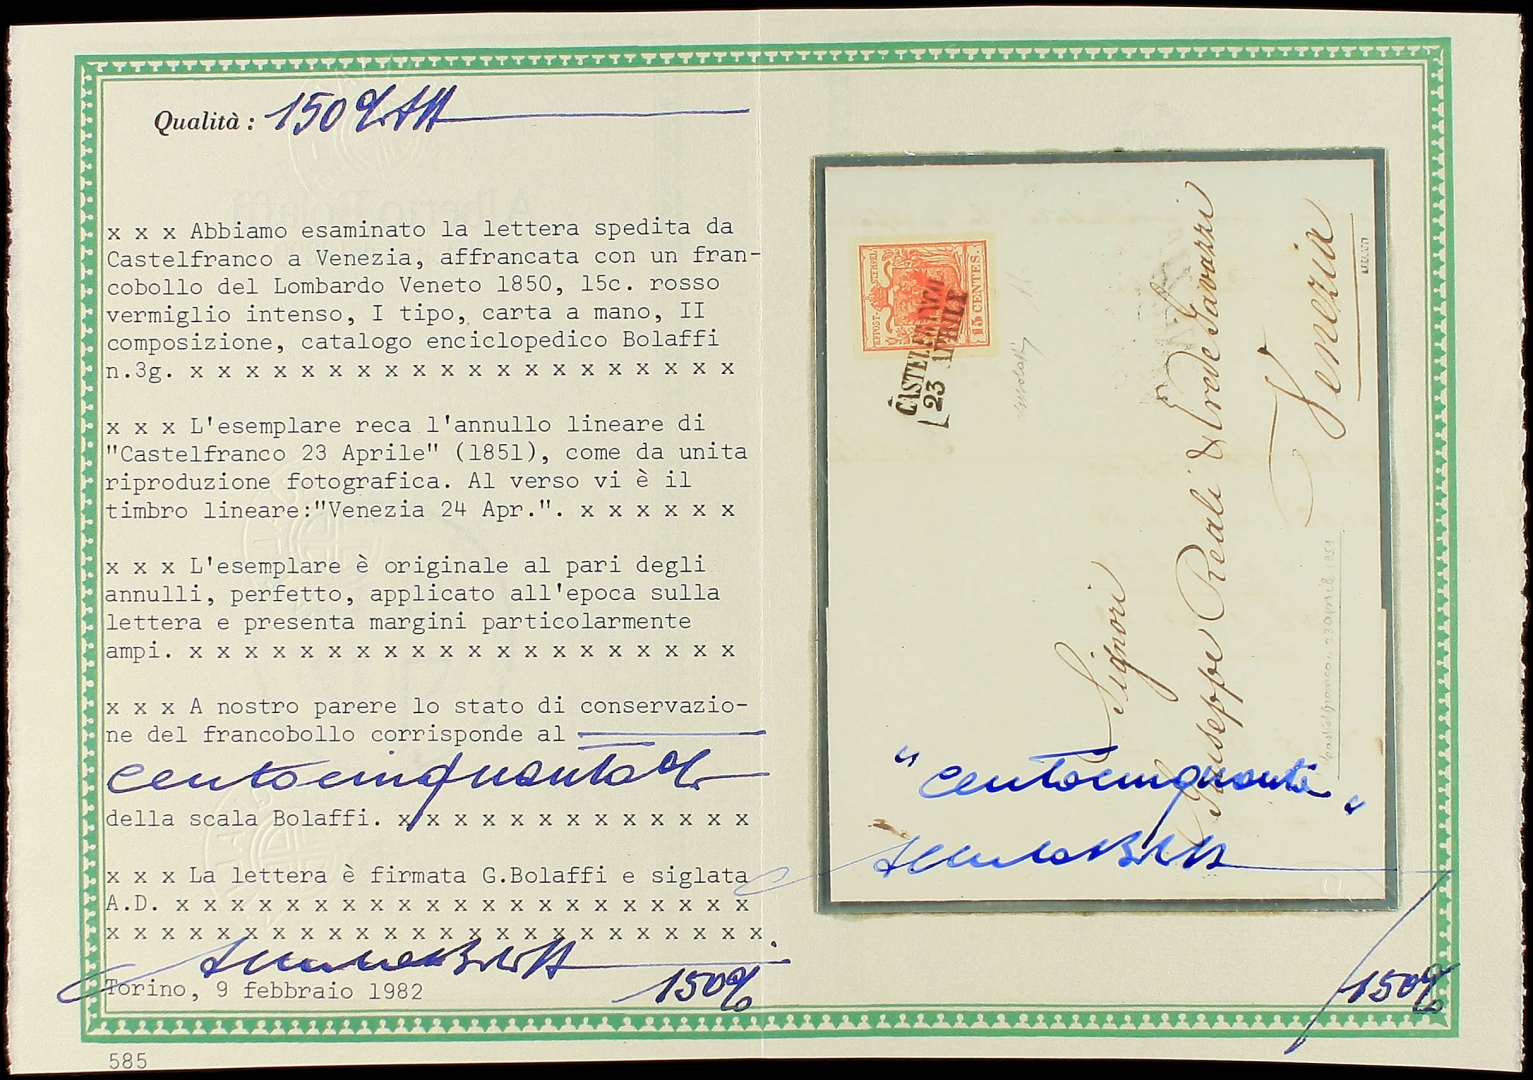 Qualità : 150%
x x x Abbiamo esaminato la lettera spedita da
Castelfranco a Venezia, affrancata con un fran-
cobollo del Lombardo Veneto 1850, 15c. rosso
vermiglio intenso, I tipo, carta a mano, II
composizione, catalogo enciclopedico Bolaffi
n.3g. x x x x x x x x x x x x x x x x x x x x
x x x L'esemplare reca l'annullo lineare di
"Castelfranco 23 Aprile" (1851), come da unita
riproduzione fotografica. Al verso vi è il
timbro lineare:"Venezia 24 Apr.". x x x x x x
x x x L'esemplare è originale al pari degli
annulli, perfetto, applicato all'epoca sulla
lettera e presenta margini particolarmente
ampi. x x x x x x x x x x x x x x x x x x x x
x x x A nostro parere lo stato di conservazio-
ne del francobollo corrisponde al
centocinquanta%
della scala Bolaffi. x x x x x x x x x x x x x
x x x La lettera è firmata G.Bolaffi e siglata
A.D. x x x x x x x x x x x x x x x x x x x x x
x x x x x x x x x x x x x x x x x x x x x x x x
Torino, 9 febbraio 1982
150%
585
KKPOST-STEMPEL
15 CENTES.
CASTELFRANCO
23 APRILE
Signori
Giuseppe Reali & Erede Gavazzi
Venezia
"centocinquanta"
150%